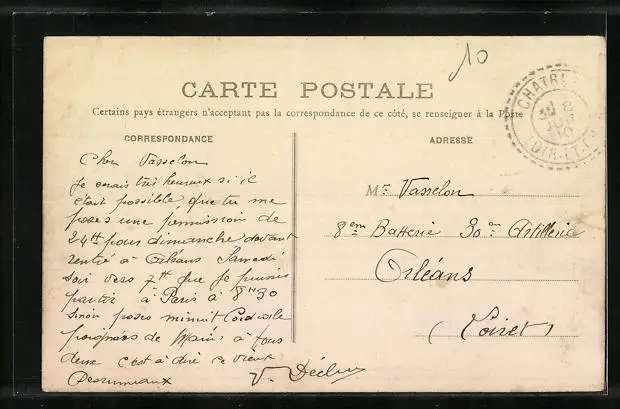 10
CARTE POSTALE
Certains pays étrangers n'acceptant pas la correspondance de ce côté, se renseigner à la Poste
CORRESPONDANCE
Cher Vasselon
je serais très heureux si il
était possible que tu me
poses une permission de
24H pour dimanche devant
rentré à Orléans Samedi
soir vers 7H que je puisse
partir à Paris à 8H30
sinon poses minuit
poignées de Mains à tous
deux c'est à dire ce vieux
V. 
ADRESSE
Mr Vasselon
8em Batterie 30em Artillerie
Orléans
(Loiret)
8
LOIR-ET-